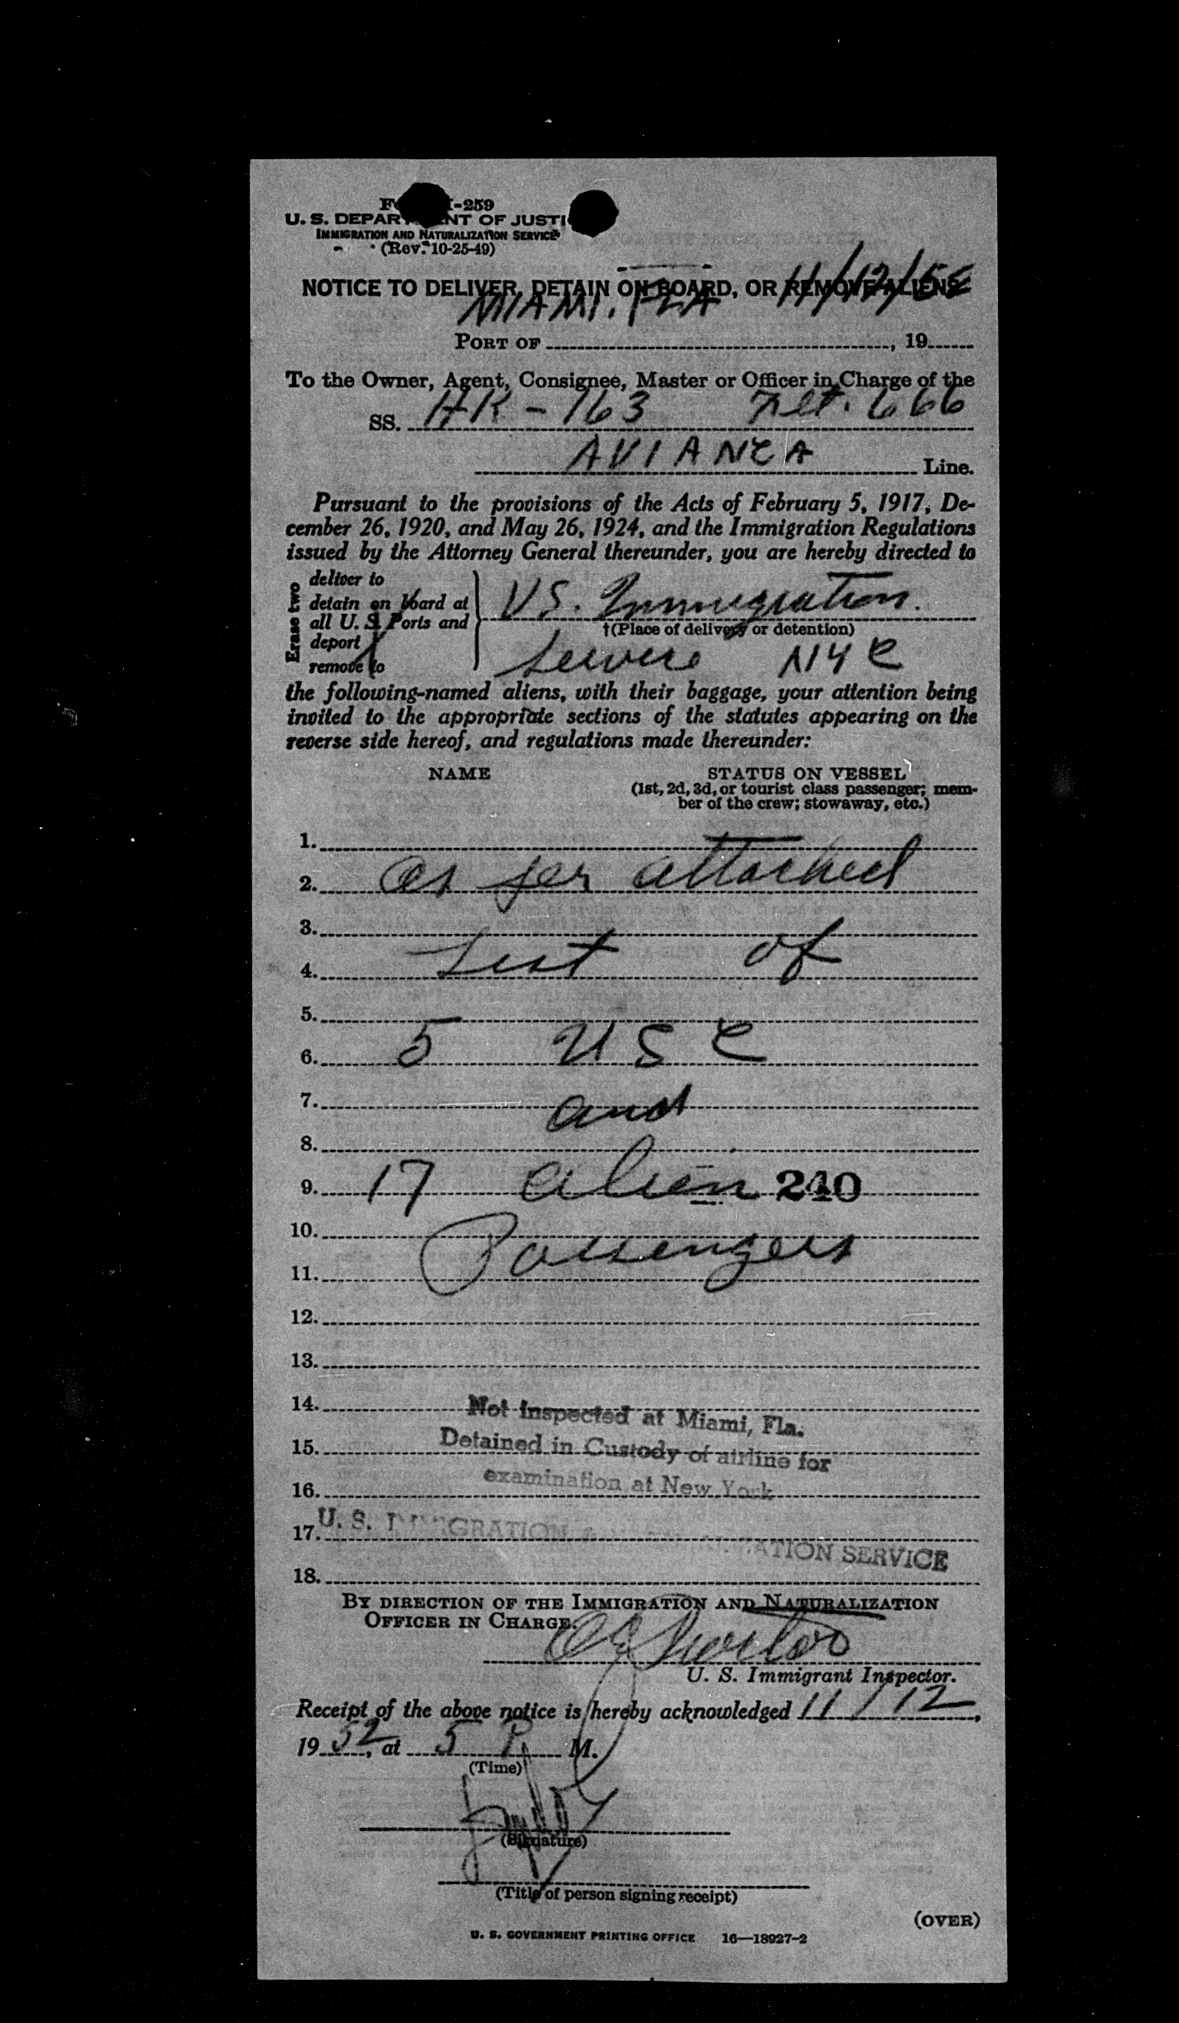 I-259
U. S. DEPARTMENT OF JUSTI
IMMIGRATION AND NATURALIZATION SERVICE
(Rev. 10-25-49)
NOTICE TO DELIVER, DETAIN ON BOARD, OR REMOVE ALIENS
MIAMI. FLA 11/12/52
PORT OF , 19
To the Owner, Agent, Consignee, Master or Officer in Charge of the
SS. HK-163 Flt. 666
AVIANCA Line.
Pursuant to the provisions of the Acts of February 5, 1917, De-
cember 26, 1920, and May 26, 1924, and the Immigration Regulations
issued by the Attorney General thereunder, you are hereby directed to
Erase two
deliver to
detain on board at
all U. S. Ports and
deport
remove to
US. Immigration.
†(Place of delivery or detention)
Service NYC
the following-named aliens, with their baggage, your attention being
invited to the appropriate sections of the statutes appearing on the
reverse side hereof, and regulations made thereunder:
NAME STATUS ON VESSEL
(1st, 2d, 3d, or tourist class passenger; mem-
ber of the crew; stowaway, etc.)
1.
2. as per attached
3.
4. List of
5.
6. 5 USC
7. and
8.
9. 17 alien 240
10.
11. Passengers
12.
13.
14. Not Inspected at Miami, Fla.
15. Detained in Custody of airline for
16. examination at New York
17. U. S. IMMIGRATION & NATURALIZATION SERVICE
18.
BY DIRECTION OF THE IMMIGRATION AND NATURALIZATION
OFFICER IN CHARGE.
U. S. Immigrant Inspector.
Receipt of the above notice is hereby acknowledged 11/12,
19 52, at 5 P. M.
(Time)
(Signature)
(Title of person signing receipt)
(OVER)
U. S. GOVERNMENT PRINTING OFFICE 16—18927-2